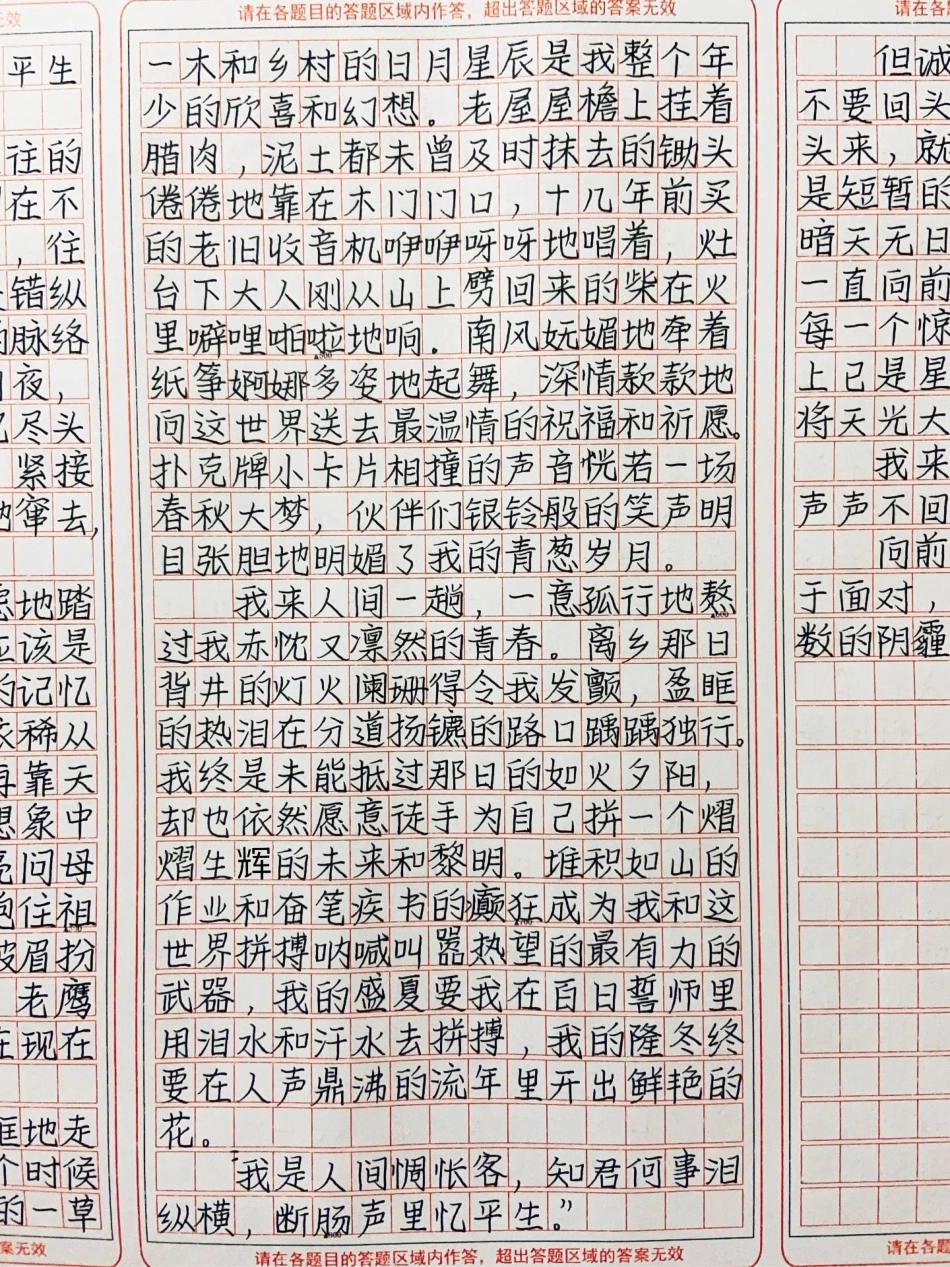 无效
平生
往的
在不
，住
错纵
脉络
夜，
尽头
紧接
窜去，
地踏
应该是
的记忆
依稀从
再靠天
想象中
问母
抱住祖
眉扮
老鹰
在现在
地走
个时候
的一草
答案无效
请在各题目的答题区域内作答，超出答题区域的答案无效
一木和乡村的日月星辰是我整个年
少的欣喜和幻想。老屋屋檐上挂着
腊肉，泥土都未曾及时抹去的锄头
倦倦地靠在木门门口，十几年前买
的老旧收音机咿咿呀呀地唱着，灶
台下大人刚从山上劈回来的柴在火
里噼哩啪啦地响．南风妩媚地牵着
纸筝婀娜多姿地起舞，深情款款地
向这世界送去最温情的祝福和祈愿。
扑克牌小卡片相撞的声音恍若一场
春秋大梦，伙伴们银铃般的笑声明
目张胆地明媚了我的青葱岁月。
我来人间一趟，一意孤行地熬
过我赤忱又凛然的青春。离乡那日
背井的灯火阑珊得令我发颤，盈眶
的热泪在分道扬镳的路口踽踽独行。
我终是未能抵过那日的如火夕阳，
却也依然愿意徒手为自己拼一个熠
熠生辉的未来和黎明。堆积如山的
作业和奋笔疾书的癫狂成为我和这
世界拼搏呐喊叫嚣热望的最有力的
武器，我的盛夏要我在百日誓师里
用泪水和汗水去拼搏，我的隆冬终
要在人声鼎沸的流年里开出鲜艳的
花。
我是人间惆怅客，知君何事泪
纵横，断肠声里忆平生。”
请在各题目的答题区域内作答，超出答题区域的答案无效
请在各题
但诚
不要回头
头来，就
是短暂的
暗天无日
一直向前
每一个惊
上已是星
将天光大
我来
声声不回
向前
于面对，
数的阴霾
请在各题